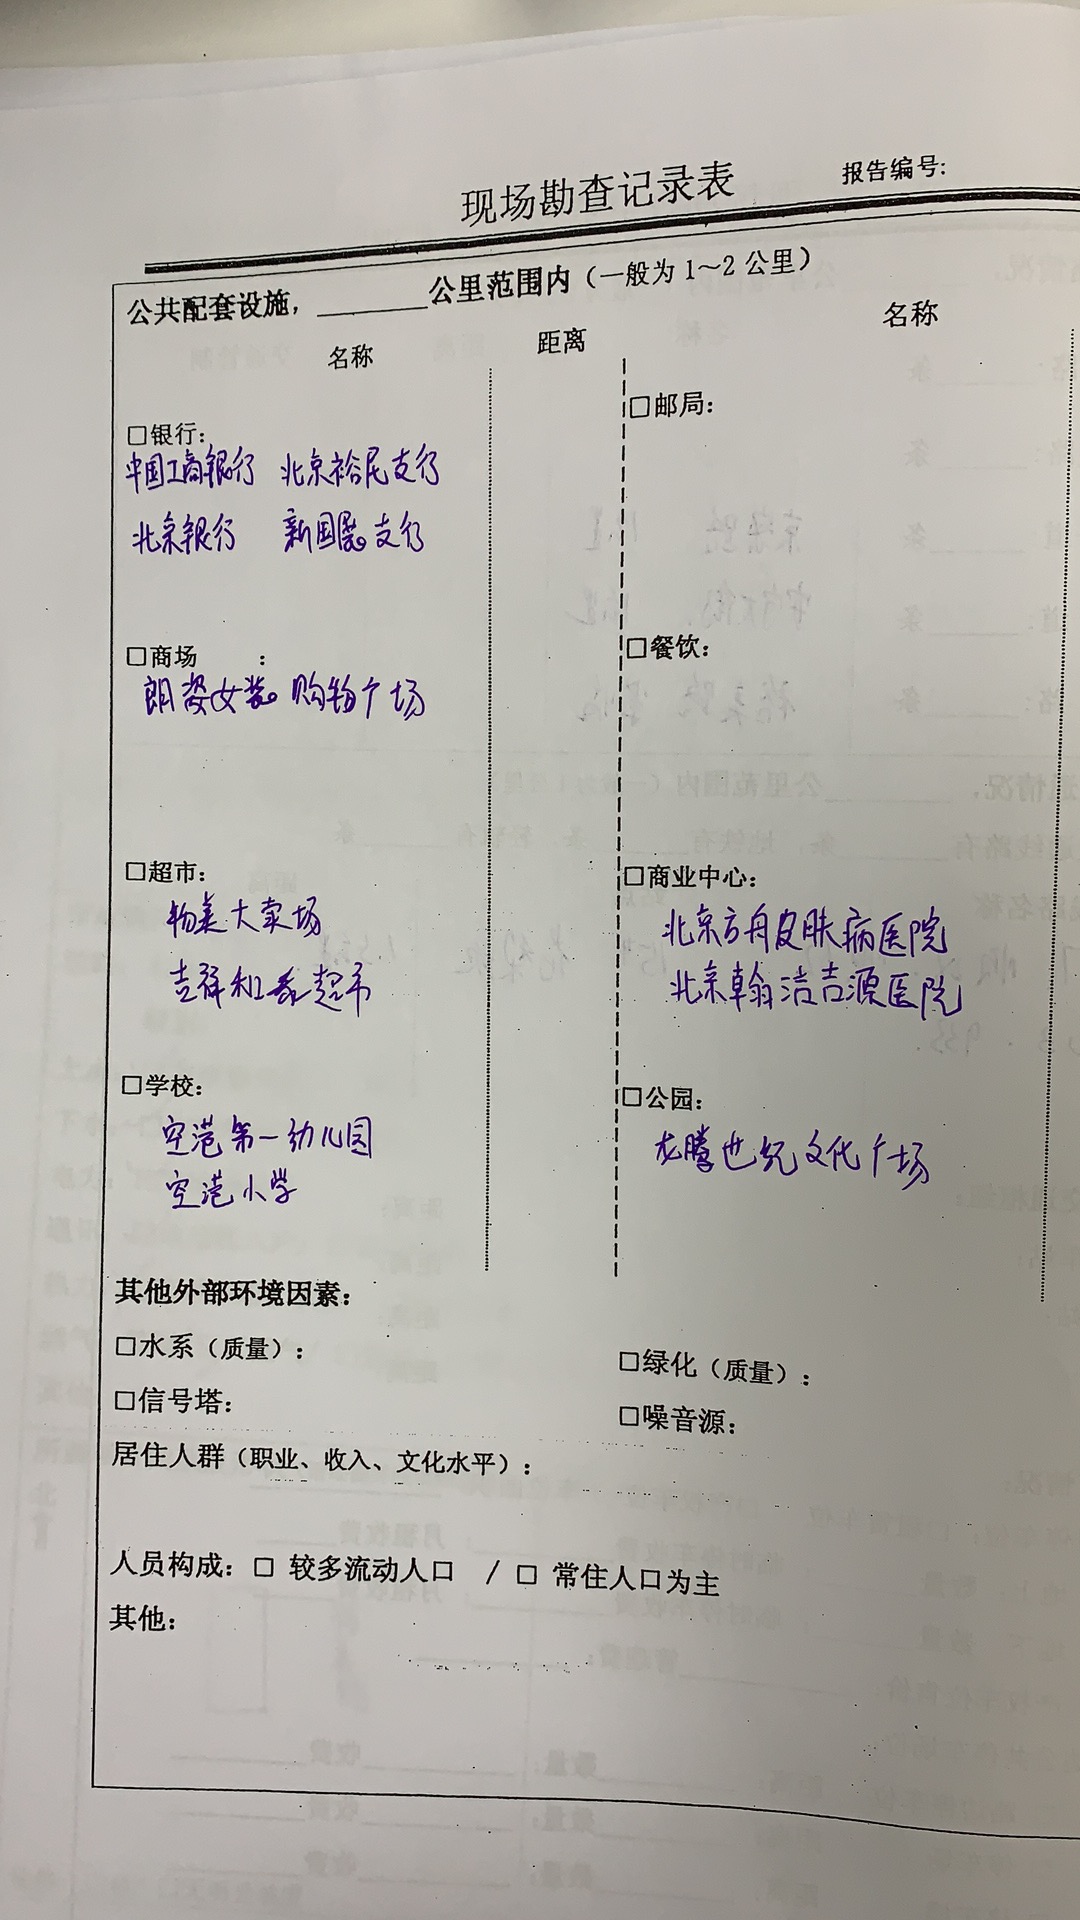 现场勘查记录表 报告编号:
公共配套设施，______公里范围内（一般为1～2公里）
名称 距离 名称
□银行: □邮局:
中国工商银行 北京裕民支行
北京银行 新国展支行
□商场 : □餐饮:
朗姿女装购物广场
□超市: □商业中心:
物美大卖场 北京方舟皮肤病医院
吉祥和泰超市 北京翰洁吉源医院
□学校: □公园:
空港第一幼儿园 龙腾世纪文化广场
空港小学
其他外部环境因素:
□水系（质量）: □绿化（质量）:
□信号塔: □噪音源:
居住人群（职业、收入、文化水平）:
人员构成: □ 较多流动人口 / □ 常住人口为主
其他: